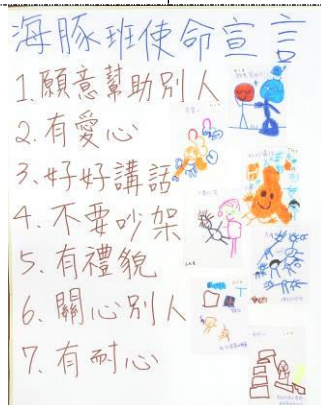 海豚班使命宣言
1. 願意幫助別人
2. 有愛心
3. 好好講話
4. 不要吵架
5. 有禮貌
6. 關心別人
7. 有耐心